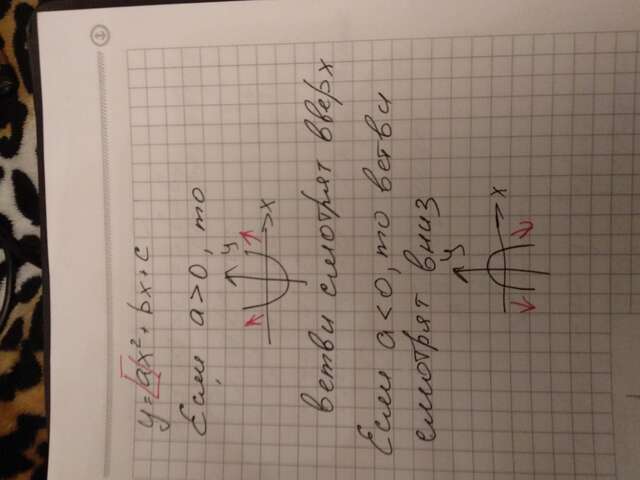 y=ax²+bx+c
Если a>0, то
y
x
ветви смотрят вверх
Если a<0, то ветви
смотрят вниз
y
x